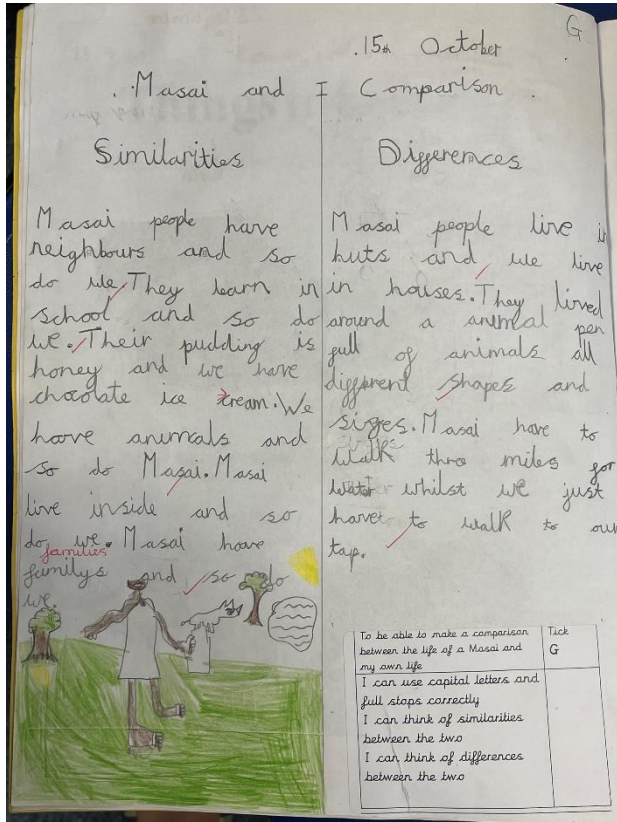 G
15th October
Masai and I Comparison
Similarities
Masai people have
neighbours and so
do we. They learn in
school and so do
we. Their pudding is
honey and we have
chocolate ice cream. We
have animals and
so do Masai. Masai
live inside and so
do we. Masai have
families
familys and so do
we
Differences
Masai people live in
huts and we live
in houses. They lived
around a animal pen
full of animals all
different shapes and
sizes. Masai have to
walk thro miles for
water whilst we just
have to walk to our
tap.
To be able to make a comparison Tick
between the life of a Masai and G
my own life
I can use capital letters and
full stops correctly
I can think of similarities
between the two
I can think of differences
between the two